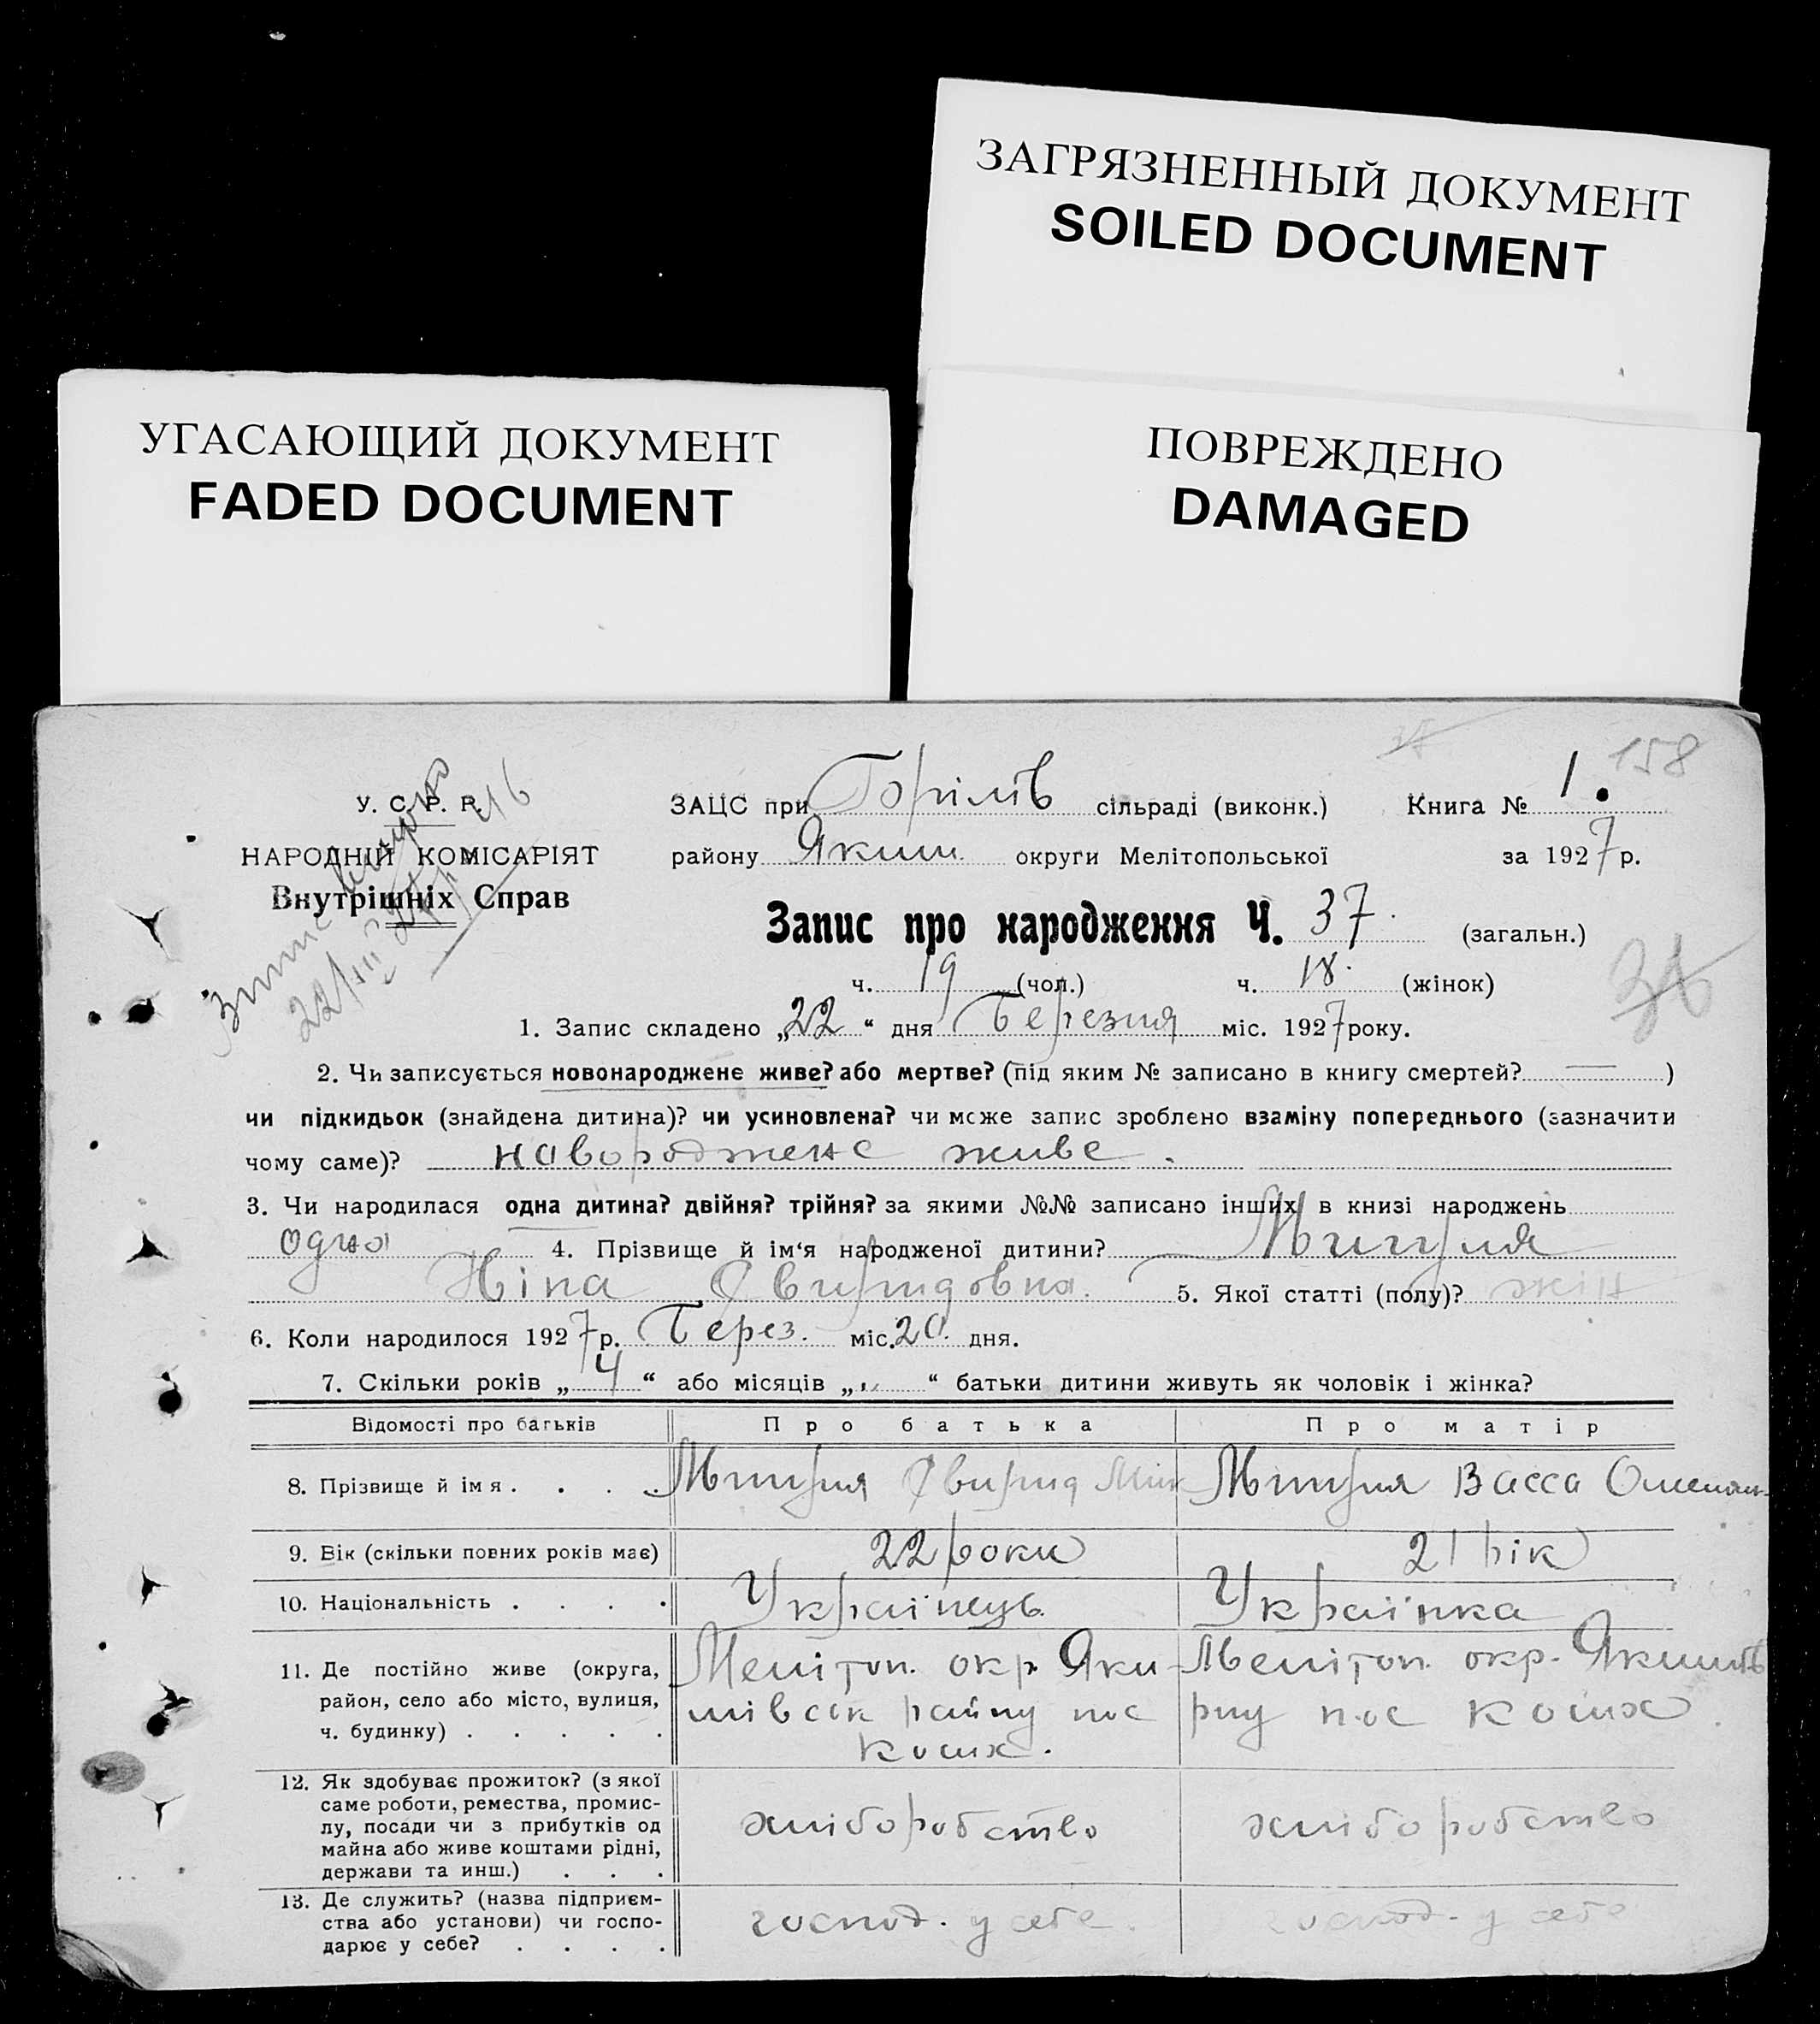 ЗАГРЯЗНЕННЫЙ ДОКУМЕНТ
SOILED DOCUMENT
УГАСАЮЩИЙ ДОКУМЕНТ
FADED DOCUMENT
ПОВРЕЖДЕНО
DAMAGED
158
У. С. Р. Р. 216
ЗАЦС при Горілів сільраді (виконк.) Книга № 1.
НАРОДНІЙ КОМІСАРІЯТ
району Яким. округи Мелітопольської за 1927 р.
Внутрішніх Справ
Запис про народження Ч. 37. (загальн.)
ч. 19 (чол.) ч. 18. (жінок)
36
22/III
1. Запис складено „22“ дня Березня міс. 1927 року.
2. Чи записується новонароджене живе? або мертве? (під яким № записано в книгу смертей? — )
чи підкидьок (знайдена дитина)? чи усиновлена? чи може запис зроблено взаміну попереднього (зазначити
чому саме)? новороджене живе.
3. Чи народилася одна дитина? двійня? трійня? за якими №№ записано інших в книзі народжень
одна 4. Прізвище й ім'я народженої дитини?
Ніна Свиридовна. 5. Якої статті (полу)? жін
6. Коли народилося 1927 р. Берез. міс. 20. дня.
7. Скільки років „4“ або місяців „ “ батьки дитини живуть як чоловік і жінка?
Відомості про батьків Про батька Про матір
8. Прізвище й імя . . . . Свирид Васса
9. Вік (скільки повних років має) 22 роки 21 рік
10. Національність . . . . Українець Українка
11. Де постійно живе (округа, район, село або місто, вулиця, ч. будинку) . . . . .
Мелітоп. окр. Яки-
мівськ райну пос
Коших.
Мелітоп. окр. Якимів
рну пос Коших
12. Як здобуває прожиток? (з якої
саме роботи, ремества, промис-
лу, посади чи з прибутків од
майна або живе коштами рідні,
держави та инш.) . . .
хліборобство хліборобство
13. Де служить? (назва підприєм-
ства або установи) чи госпо-
дарює у себе? . . . .
господ. у себе. господ. у себе